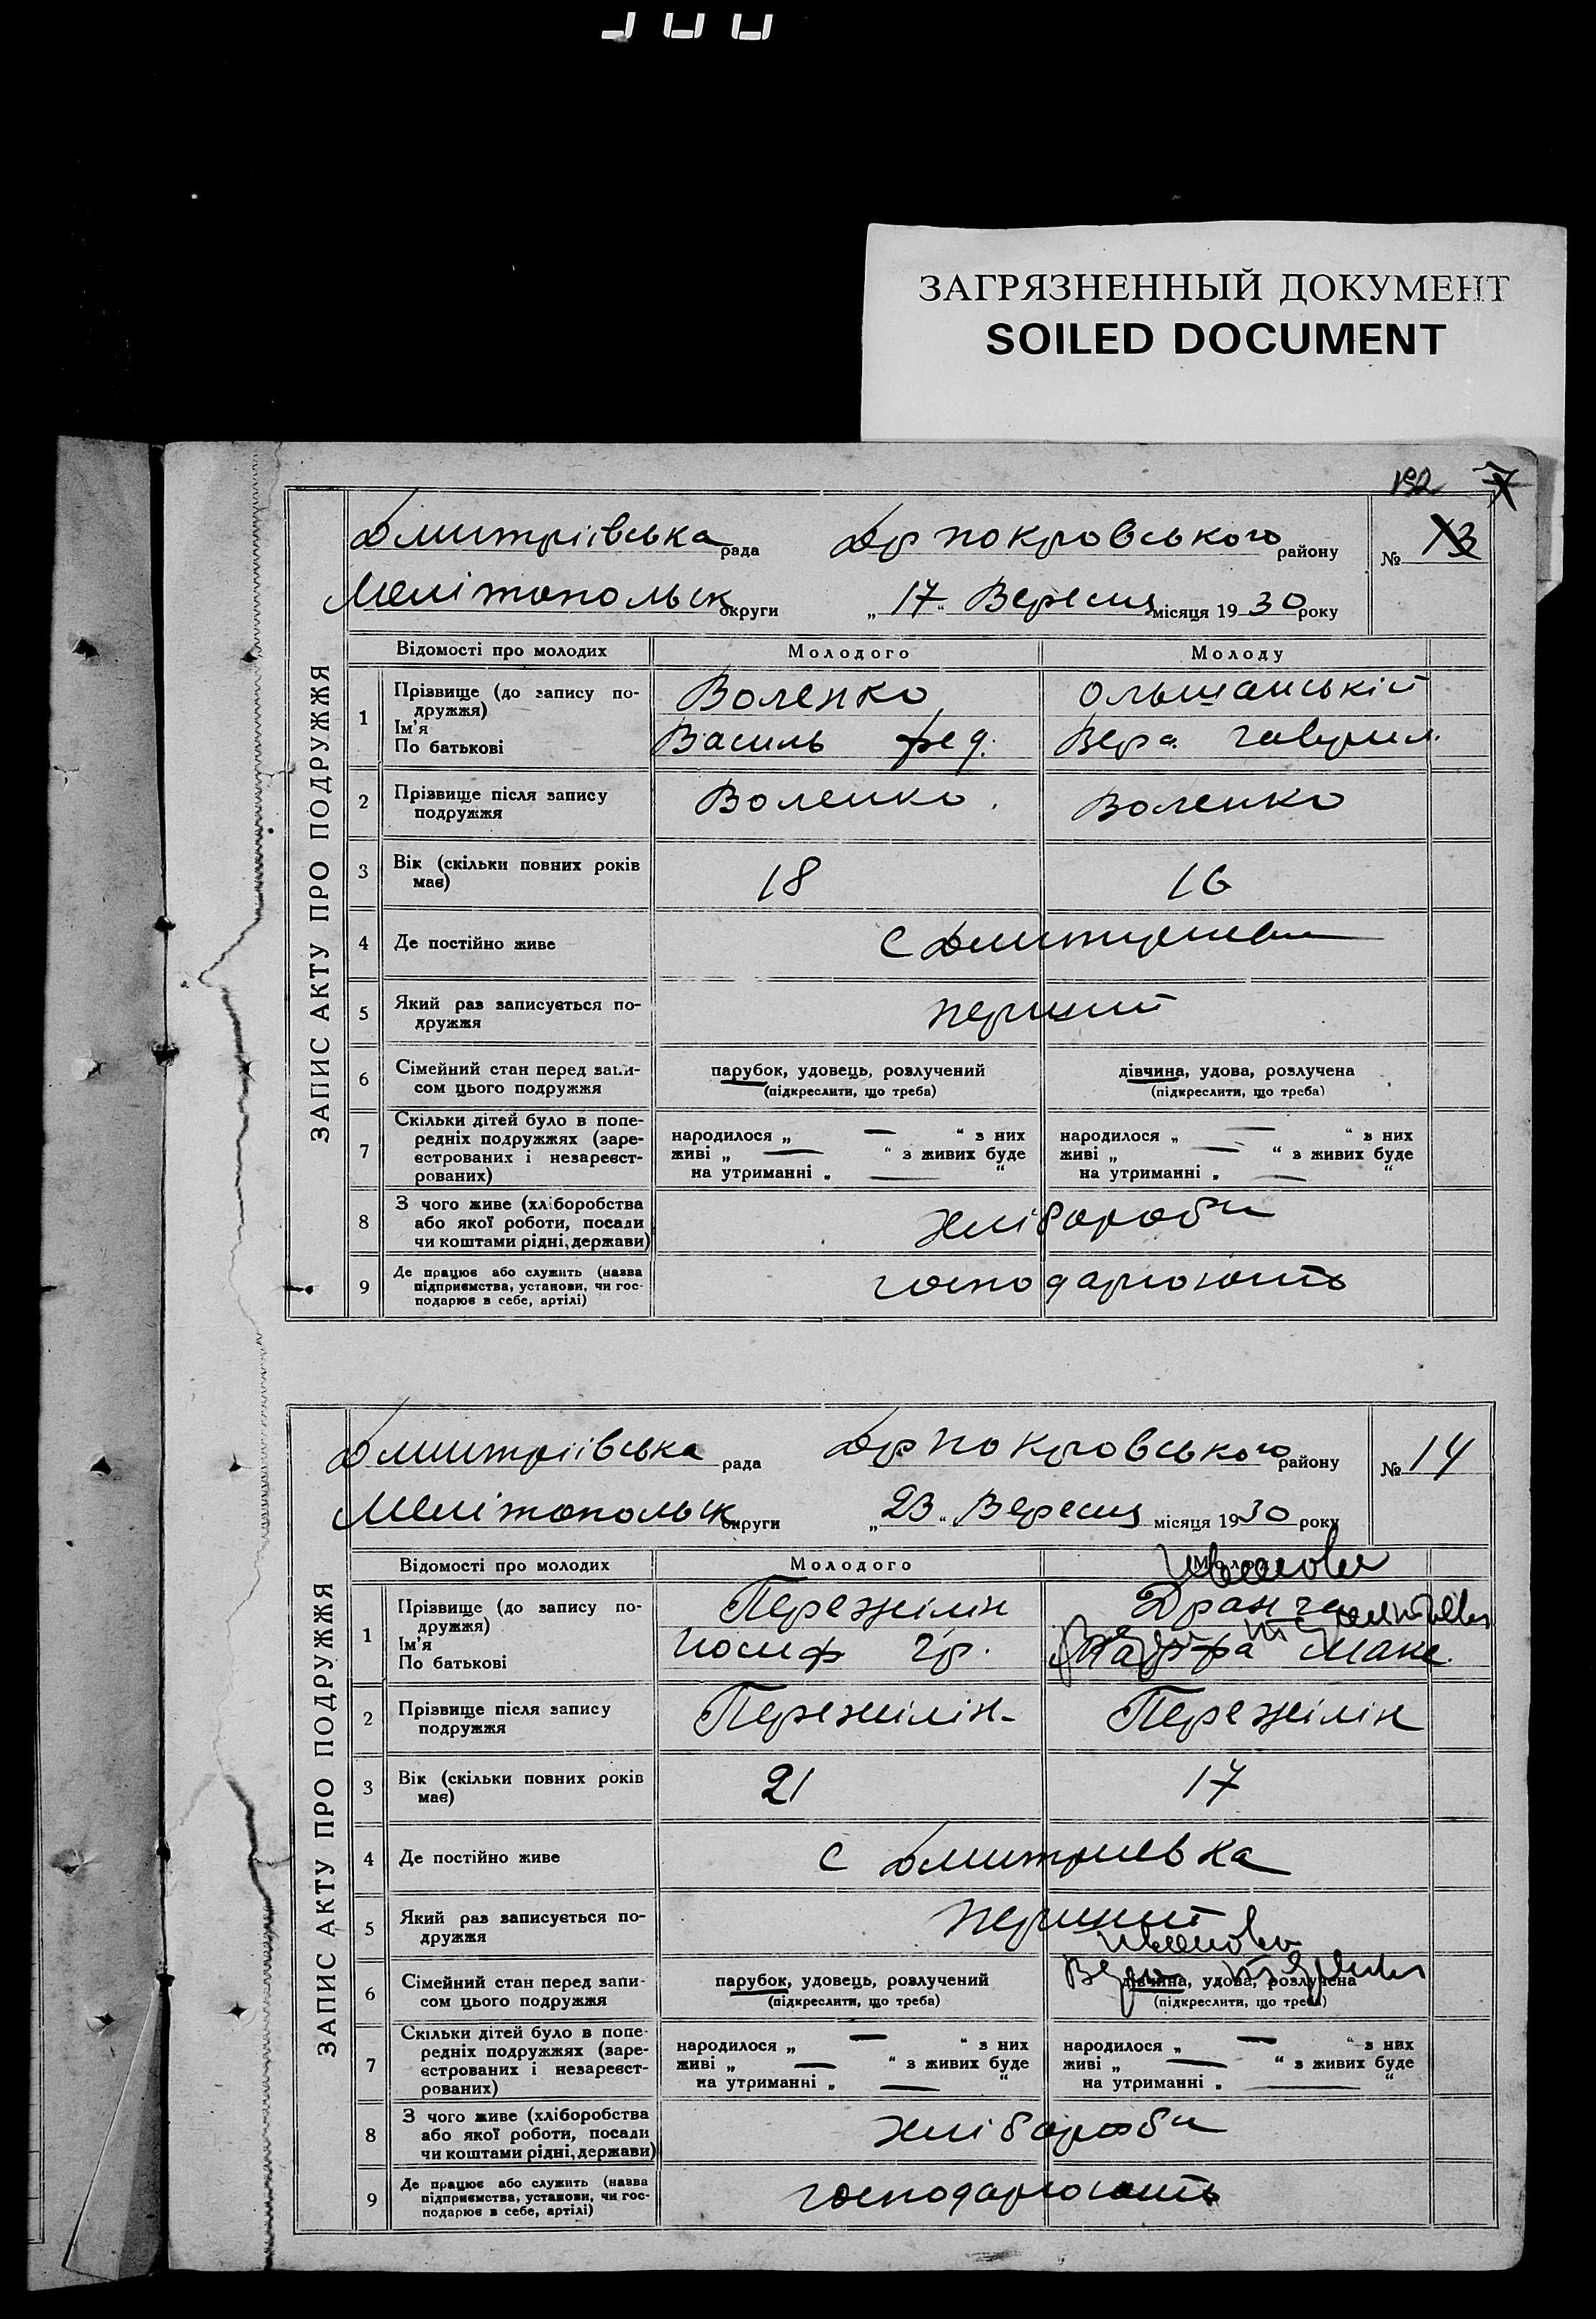 ЗАГРЯЗНЕННЫЙ ДОКУМЕНТ
SOILED DOCUMENT
192 7
ЗАПИС АКТУ ПРО ПОДРУЖЖЯ
Дмитріївська рада Др Покровського району № 13
Мелітопольськ округи „17“ Вересня місяця 1930 року
Відомості про молодих Молодого Молоду
1 Прізвище (до запису по- Воленко Ольшанський
дружжя)
Ім'я
По батькові Василь Фед. Вера Гаврил.
2 Прізвище після запису Воленко. Воленко
подружжя
3 Вік (скільки повних років 18 16
має)
4 Де постійно живе с Дмитриевка
5 Який раз записується по- перший
дружжя
6 Сімейний стан перед запи- парубок, удовець, розлучений дівчина, удова, розлучена
сом цього подружжя (підкреслити, що треба) (підкреслити, що треба)
7 Скільки дітей було в попе-
редніх подружжях (заре- народилося „ — “ з них народилося „ — “ з них
єстрованих і незареєст- живі „ — “ з живих буде живі „ — “ з живих буде
рованих) на утриманні „ — “ на утриманні „ — “
8 З чого живе (хліборобства
або якої роботи, посади хлібороби
чи коштами рідні, держави)
9 Де працює або служить (назва
підприємства, установи, чи гос- господарюють
подарює в себе, артілі)
ЗАПИС АКТУ ПРО ПОДРУЖЖЯ
Дмитріївська рада Др Покровського району № 14
Мелітопольськ округи „23“ Вересня місяця 1930 року
Відомості про молодих Молодого Иванова
1 Прізвище (до запису по- Пережілін Дранга
дружжя)
Ім'я
По батькові Иосиф Гр. Марфа Макс.
2 Прізвище після запису Пережілін- Пережілін
подружжя
3 Вік (скільки повних років 21 17
має)
4 Де постійно живе с Дмитриевка
5 Який раз записується по- перший
дружжя Иванова
6 Сімейний стан перед запи- парубок, удовець, розлучений Вера дівчина, удова, розлучена
сом цього подружжя (підкреслити, що треба) (підкреслити, що треба)
7 Скільки дітей було в попе-
редніх подружжях (заре- народилося „ — “ з них народилося „ — “ з них
єстрованих і незареєст- живі „ — “ з живих буде живі „ — “ з живих буде
рованих) на утриманні „ — “ на утриманні „ — “
8 З чого живе (хліборобства
або якої роботи, посади хлібороби
чи коштами рідні, держави)
9 Де працює або служить (назва
підприємства, установи, чи гос- господарюють
подарює в себе, артілі)